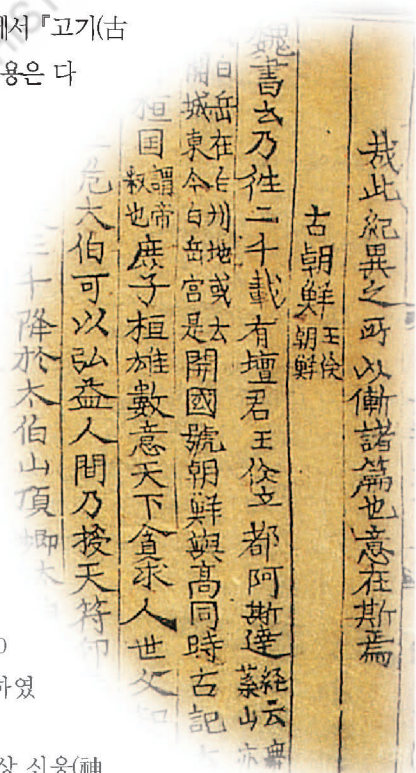 에서 『고기(古
용은 다
哉此紀異之所以慚諸篇也意在斯焉
古朝鮮 王倹朝鮮
魏書云乃徃二千載有壇君王倹立都阿斯達 經云無葉山亦
白岳在白州地或云開城東今白岳宮是 開國號朝鮮與高同時古記
桓囯 謂帝釈也 庶子桓雄數意天下貪求人世父知
危太伯可以弘益人間乃授天符印
三千降於太伯山頂
하였
상 신웅(神